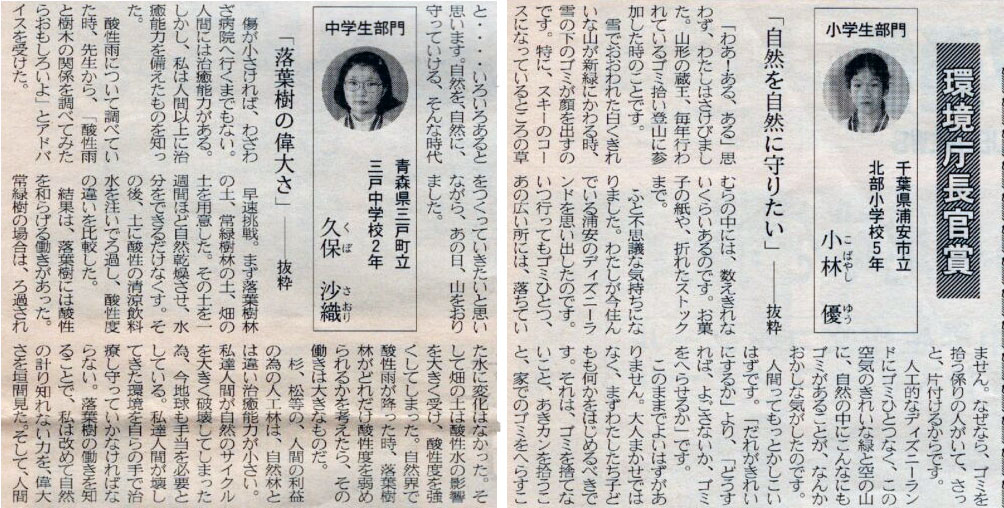 環境庁長官賞
小学生部門
千葉県浦安市立
北部小学校5年
こばやし ゆう
小林 優
「自然を自然に守りたい」――抜粋
「わあ!ある、ある」思
わず、わたしはさけびまし
た。山形の蔵王、毎年行わ
れているゴミ拾い登山に参
加した時のことです。
雪でおおわれた白くきれ
いな山が新緑にかわる時、
雪の下のゴミが顔を出すの
です。特に、スキーのコー
スになっているところの草
むらの中には、数えきれな
いくらいあるのです。お菓
子の紙や、折れたストック
まで。
ふと不思議な気持ちにな
りました。わたしが今住ん
でいる浦安のディズニーラ
ンドを思い出したのです。
いつ行ってもゴミひとつ、
あの広い所には、落ちてい
ません。なぜなら、ゴミを
拾う係りの人がいて、さっ
と、片付けるからです。
人工的なディズニーラン
ドにゴミひとつなく、この
空気のきれいな緑と空の山
に、自然の中にこんなにも
ゴミがあることが、なんか
おかしな気がしたのです。
人間ってもっとかしこい
はずです。「だれがきれい
にするか」より、「どうす
れば、よごさないか、ゴミ
をへらせるか」です。
このままでよいはずがあ
りません。大人まかせでは
なく、まずわたしたち子ど
もも何かをはじめるべきで
す。それは、ゴミを捨てな
いこと、あきカンを拾うこ
と、家でのゴミをへらすこ
と・・・いろいろあると
思います。自然を、自然に、
守っていける、そんな時代
をつくっていきたいと思い
ながら、あの日、山をおり
ました。
中学生部門
青森県三戸町立
三戸中学校2年
くぼ さおり
久保 沙織
「落葉樹の偉大さ」――抜粋
傷が小さければ、わざわ
ざ病院へ行くまでもない。
人間には治癒能力がある。
しかし、私は人間以上に治
癒能力を備えたものを知っ
た。
酸性雨について調べてい
た時、先生から、「酸性雨
と樹木の関係を調べてみた
らおもしろいよ」とアドバ
イスを受けた。
早速挑戦。まず落葉樹林
の土、常緑樹林の土、畑の
土を用意した。その土を一
週間ほど自然乾燥させ、水
分をできるだけなくす。そ
の後、土に酸性の清涼飲料
水を注いでろ過し、酸性度
の違いを比較した。
結果は、落葉樹には酸性
を和らげる働きがあった。
常緑樹の場合は、ろ過され
た水に変化はなかった。そ
して畑の土は酸性水の影響
を大きく受け、酸性度を強
くしてしまった。自然界で
酸性雨が降った時、落葉樹
林がどれだけ酸性度を弱め
られるかを考えたら、その
働きは大きなものだ。
杉、松等の、人間の利益
の為の人工林は、自然林と
は違い治癒能力が小さい。
私達人間が自然のサイクル
を大きく破壊してしまった
為、今地球も手当を必要と
している。私達人間が壊し
てきた環境を自らの手で治
療し守っていかなければな
らない。落葉樹の働きを知
ることで、私は改めて自然
の計り知れない力を、偉大
さを垣間見た。そして、人間